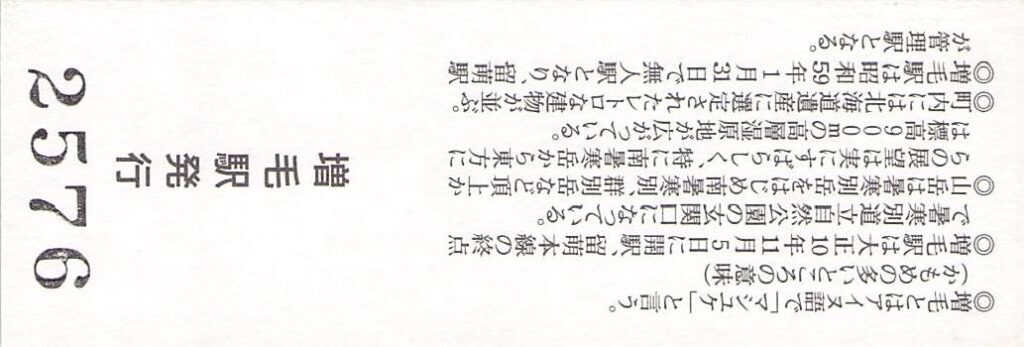 ◎増毛とはアイヌ語で「マシュケ」と言う。
(かもめの多いところの意味)
◎増毛駅は大正10年11月5日に開駅、留萌本線の終点
で暑寒別道立自然公園の玄関口になっている。
◎山岳は暑寒別岳をはじめ南暑寒別、群別岳など頂上か
らの展望は実にすばらしく、特に南暑寒岳から東方に
は標高900mの高層湿原地が広がっている。
◎町内には北海道遺産に選定されたレトロな建物が並ぶ。
◎増毛駅は昭和59年1月31日で無人駅となり、留萌駅
が管理駅となる。
増毛駅発行
2576